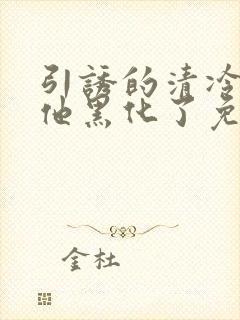 引誘的清冷
他黑化了免
金杜